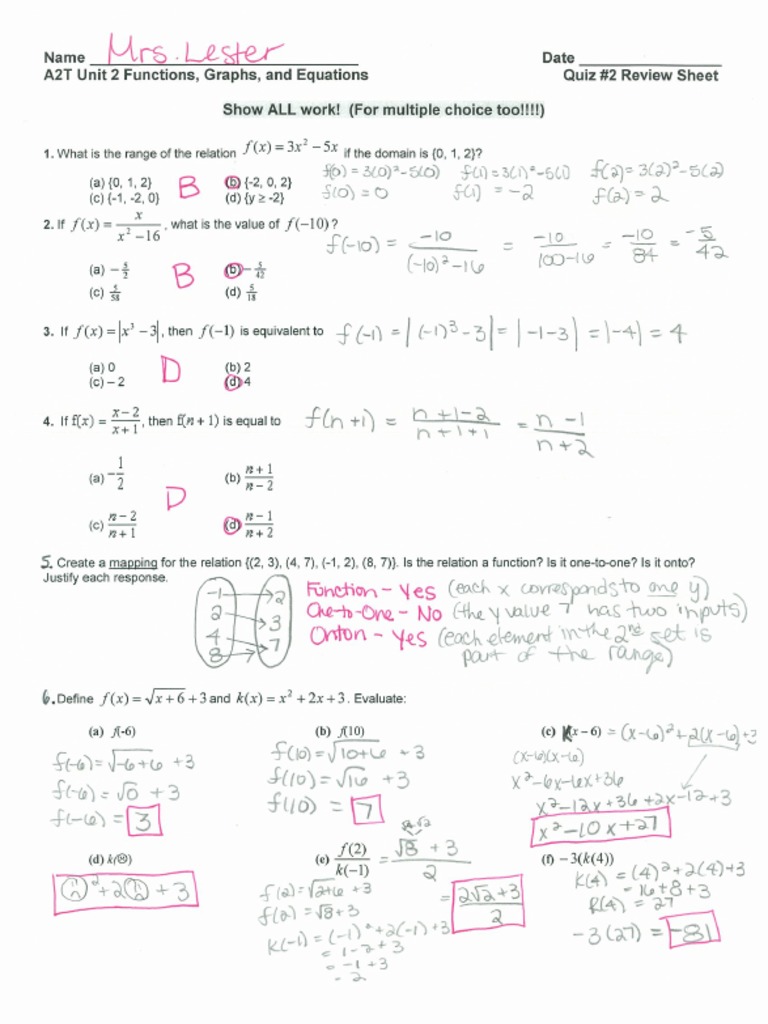 Name Mrs. Lester Date
A2T Unit 2 Functions, Graphs, and Equations Quiz #2 Review Sheet
Show ALL work! (For multiple choice too!!!!)
1. What is the range of the relation f(x) = 3x² − 5x if the domain is {0, 1, 2}?
f(0) = 3(0)² - 5(0) f(1) = 3(1)² - 5(1) f(2) = 3(2)² - 5(2)
f(0) = 0 f(1) = -2 f(2) = 2
(a) {0, 1, 2} B (b) {-2, 0, 2}
(c) {-1, -2, 0} (d) {y ≥ -2}
2. If f(x) = x/(x² − 16), what is the value of f(−10)?
f(-10) = -10/((-10)² - 16) = -10/(100-16) = -10/84 = -5/42
(a) −5/2 B (b) −5/42
(c) 5/58 (d) 5/18
3. If f(x) = |x³ − 3|, then f(−1) is equivalent to f(-1) = |(-1)³ - 3| = |-1-3| = |-4| = 4
(a) 0 D (b) 2
(c) – 2 (d) 4
4. If f(x) = (x−2)/(x+1), then f(n + 1) is equal to f(n+1) = (n+1-2)/(n+1+1) = (n-1)/(n+2)
(a) −1/2 (b) (n+1)/(n−2)
D
(c) (n−2)/(n+1) (d) (n−1)/(n+2)
5. Create a mapping for the relation {(2, 3), (4, 7), (-1, 2), (8, 7)}. Is the relation a function? Is it one-to-one? Is it onto?
Justify each response.
-1 2
2 3
4 7
8
Function - Yes (each x corresponds to one y)
One-to-One - No (the y value 7 has two inputs)
Onton - Yes (each element in the 2nd set is
part of the range)
6. Define f(x) = √(x+6) + 3 and k(x) = x² + 2x + 3. Evaluate:
(a) f(-6) (b) f(10) (c) k(x − 6) = (x-6)² + 2(x-6) + 3
f(-6) = √(-6+6) + 3 f(10) = √(10+6) + 3 (x-6)(x-6)
f(-6) = √0 + 3 f(10) = √16 + 3 x² - 6x - 6x + 36
f(-6) = 3 f(10) = 7 x² - 12x + 36 + 2x - 12 + 3
x² - 10x + 27
(d) k(☹) (e) f(2)/k(−1) = (√8 + 3)/2 (f) − 3(k(4))
☹² + 2☹ + 3
√4√2
f(2) = √(2+6) + 3
f(2) = √8 + 3
= (2√2 + 3)/2
k(-1) = (-1)² + 2(-1) + 3
= 1 - 2 + 3
= -1 + 3
= 2
K(4) = (4)² + 2(4) + 3
= 16 + 8 + 3
K(4) = 27
-3(27) = -81